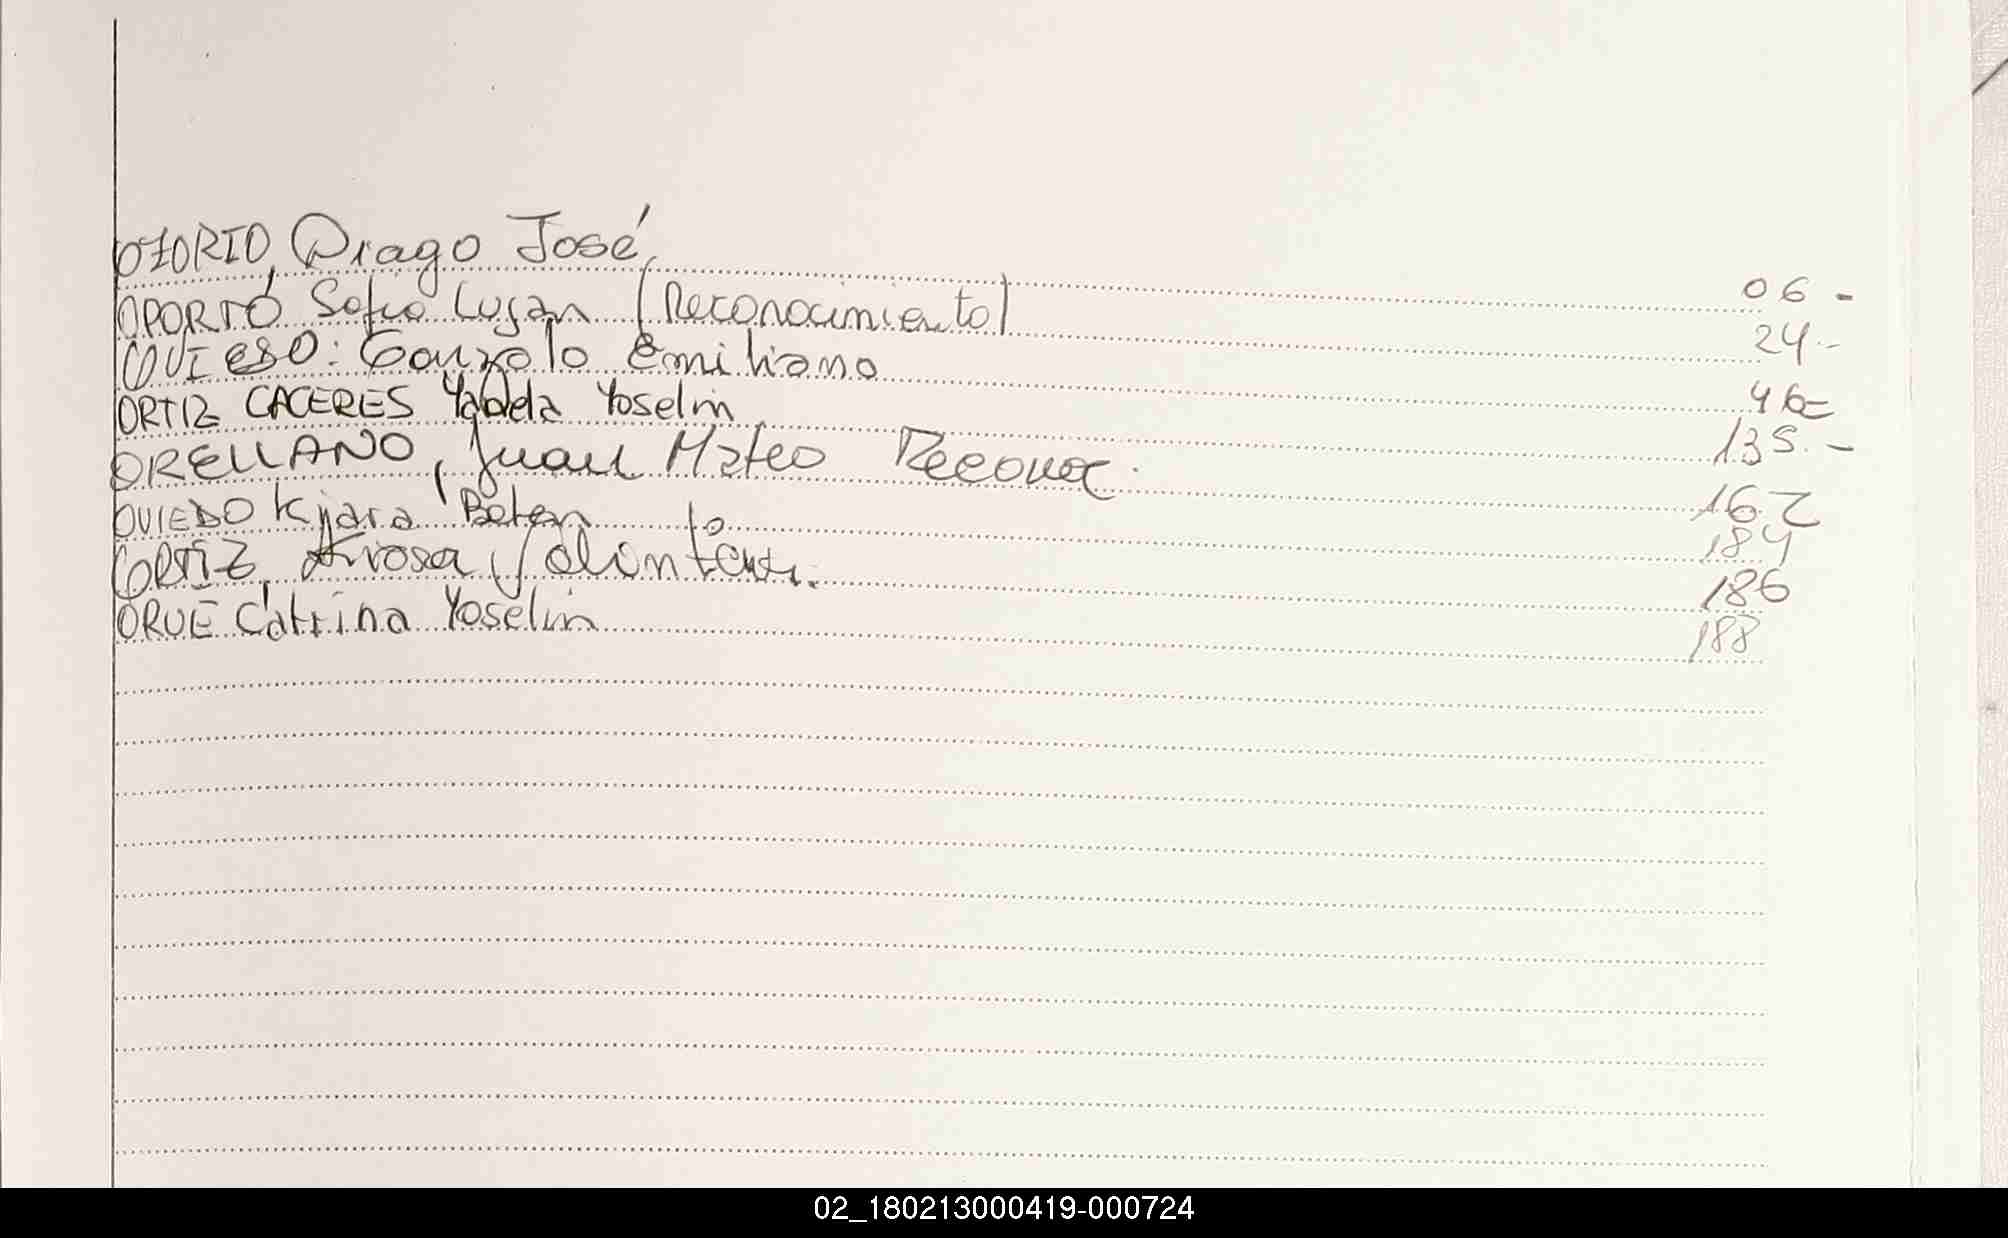 OZORIO, Diago José 06 -
OPORTO Sofia Lujan (Reconocimiento) 24 -
OVIEDO: Gonzalo Emiliano 46 -
ORTIZ CACERES Yoselin 135 -
ORELLANO, Juan Mateo Reconoc. 162
OVIEDO Kjara Belen 184
ORTIZ, 186
ORUE Catrina Yoselin 188
02_180213000419-000724